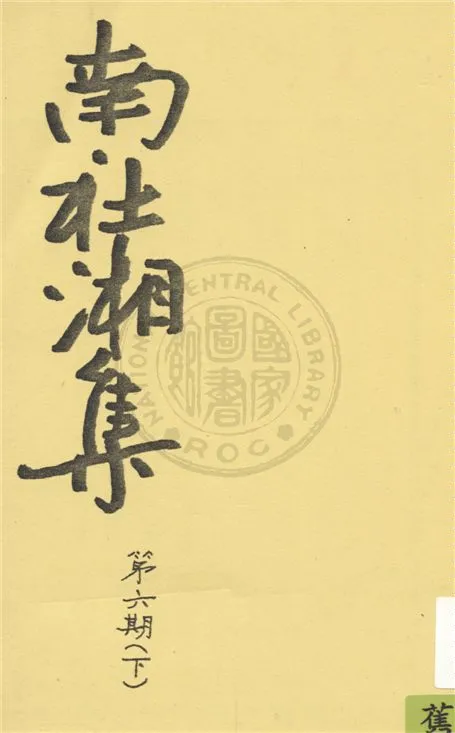 南社湘集
第六期(下)
NATIONAL CENTRAL LIBRARY
國家圖書館
ROC
舊